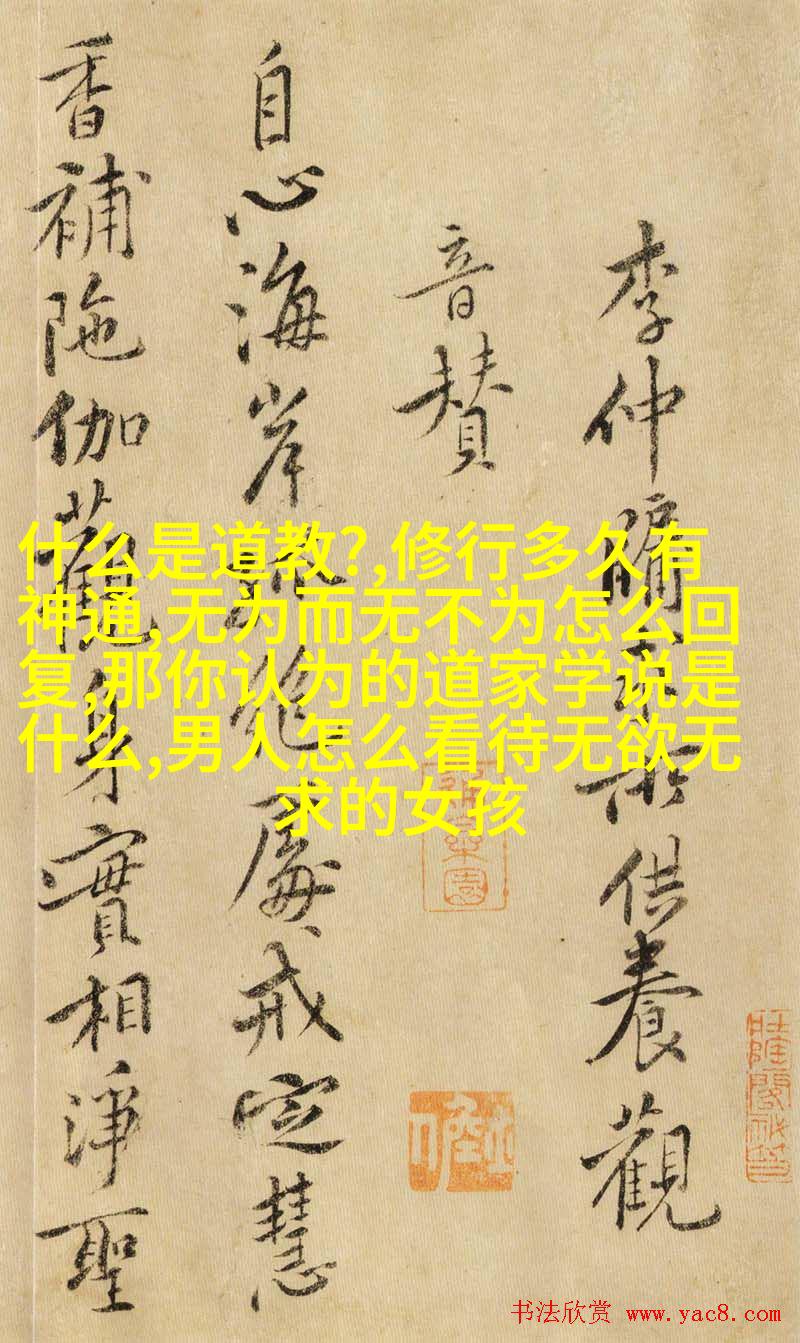 李仲牖
供養觀
音赞
自心海岸
戒定慧
香補陁伽觀身實相淨聖
什么是道教?,修行多久有
神通,无为而无不为怎么回
复,那你认为的道家学说是
什么,男人怎么看待无欲无
求的女孩
书法欣赏 www.yac8.com